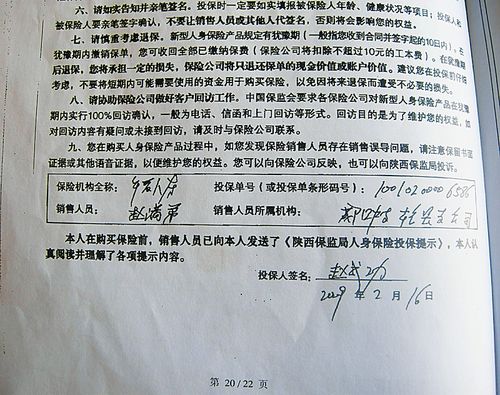 六、请如实告知并亲笔签名。投保时一定要如实填报被保险人年龄、健康状况等项目;投保人和
被保险人要亲笔签字确认,不要让销售人员或其他人代签名,否则将会影响您的权益。
七、请慎重考虑退保。新型人身保险产品规定有犹豫期(一般指您收到合同并签字起的10日内),在
犹豫期内撤销保单,您可收回全部已缴纳保费(保险公司将扣除不超过10元的工本费)。在犹豫期
后退保,您将承担一定的损失,保险公司将只退还保单的现金价值或账户价值。建议您在投保前仔细
考虑,不要将短期内可能需要使用的资金用于购买保险,以免因将来退保而遭受不必要的损失。
八、请协助保险公司做好客户回访工作。中国保监会要求各保险公司对新型人身保险产品在犹豫
期内实行100%回访确认,一般为电话、信函和上门回访等形式。回访目的是为了维护您的权益,如
对回访内容有疑问或未接到回访,请及时与保险公司联系。
九、您在购买人身保险产品过程中,如您发现保险销售人员存在销售误导问题,请注意保留书面
证据或其他语音证据,以便维护您的权益。您可以向保险公司反映,也可以向陕西保监局投诉。
保险机构全称: 投保单号(或投保单条形码号):1001020000 6586
销售人员: 销售人员所属机构:
本人在购买保险前,销售人员已向本人发送了《陕西保监局人身保险投保提示》,本人认
真阅读并理解了各项提示内容。
投保人签名:
2009年2月16日
第 20/22 页